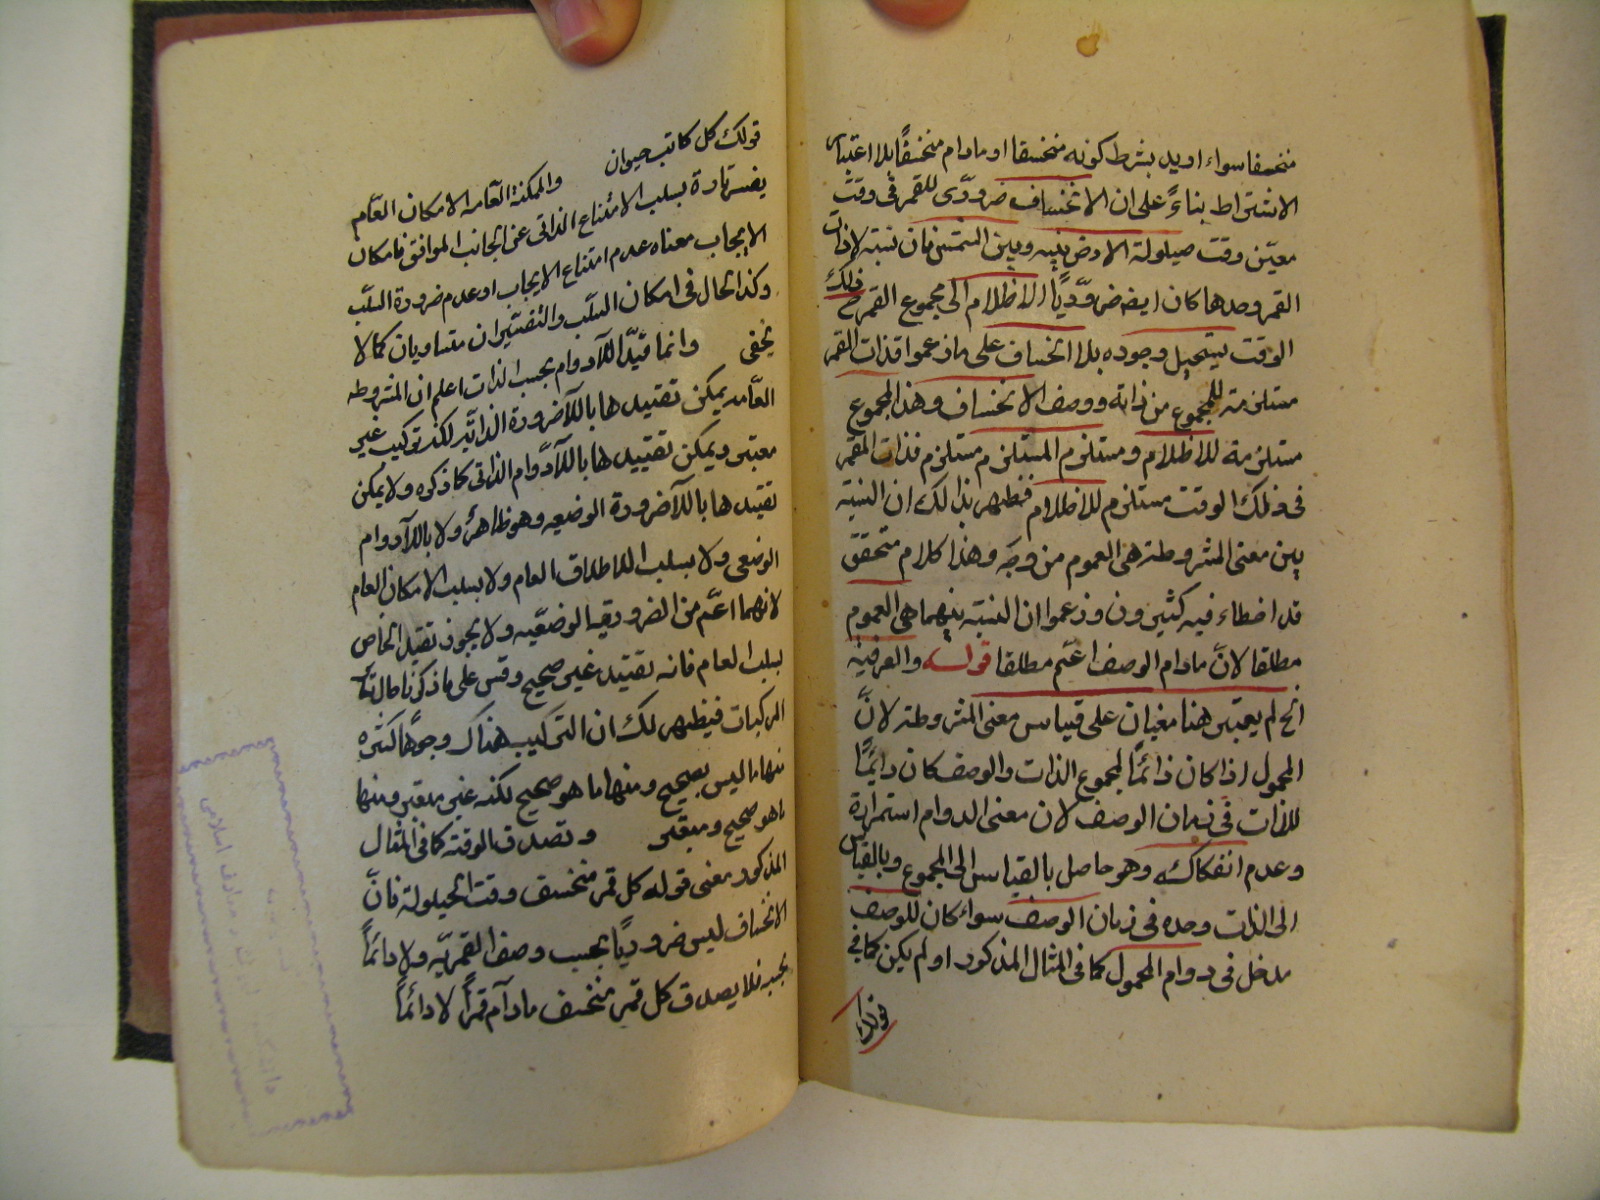 منخسفا سواء اريد بشرط كونه منخسفا او مادام منخسفًا بلا اعتبار
الاشتراط بناءً على ان الانخساف ضرورّى للقمر فى وقت
معيّن وقت حيلولة الارض بينه وبين الشمس فان نسبته لاذات
القمر وحدها كان ايضا ضروّريًا الاظلام الى مجموع القمر ذلك
الوقت يستحيل وجوده بلا انخساف على ما زعموا فذات القمر
مستلزمة للمجموع من ذاته ووصف الانخساف وهذا المجموع
مستلزمة للاظلام ومستلزم المستلزم مستلزم فذات القمر
فى ذلك الوقت مستلزم للاظلام فظهر بذالك ان النسبة
بين معنى المشروطة هى العموم من وجه وهذا كلام متحقق
قد اخطاء فيه كثيرون وزعموا ان النسبة بينهما هى العموم
مطلقا لانّ مادام الوصف اعّم مطلقا قوله والعرفية
الخ لم يعتبر هنا معنيان على قياس معنى المشروطة لانّ
المحمول اذا كان دائمًا لمجموع الذات والوصف كان دائمًا
للذات فى زمان الوصف لان معنى الدوام استمرارة
وعدم انفكاكه وهو حاصل بالقياس الى المجموع وبالقياس
الى الذات وحده فى زمان الوصف سواء كان للوصف
مدخل فى دوام المحمول كما فى المثال المذكور او لم يكن كما فى
قولك
قولك كل كاتب حيوان والممكنة العآمه الامكان العآم
يفسر تارة بسلب الامتناع الذاتى عن الجانب الموافق فامكان
الايجاب معناه عدم امتناع الايجاب او عدم ضرورة السلب
وكذا الحال فى امكان السلب والتفسيران متساويان كما لا
يخفى وانما قيّد اللآدوام بحسب الذات اعلم ان المشروطه
العآمه يمكن تقييدها باللآضرورة الذاتيّه لكنه تركيب غير
معتبر ويمكن تقييدها باللآدّوام الذاتى كما ذكره ولا يمكن
تقييدها باللآضرورة الوضعيه وهو ظاهرٌ ولا باللآدوام
الوضعى ولا بسلب الاطلاق العام ولا بسلب الامكان العام
لانهما اعّم من الضروريّه الوضعّيه ولا يجوز تقييد الخاص
بسلب العام فانه تقييد غير صحيح وقس على ما ذكرنا حال سائر
المركبات فيظهر لك ان التركيب هناك وجوهًا كثيره
منها ما ليس بصحيح ومنها ما هو صحيح لكنه غير معتبر ومنها
ما هو صحيح ومعتبر وتصدق الوقتية كما فى المثال
المذكور معنى قوله كل قمر منخسف وقت الحيلولة فانّ
الانخساف ليس ضروريًا بحسب وصف القمريّه ولا دائمًا
بحسبه فلا يصدق كل قمر منخسف مادام قمرًا لا دائمًا